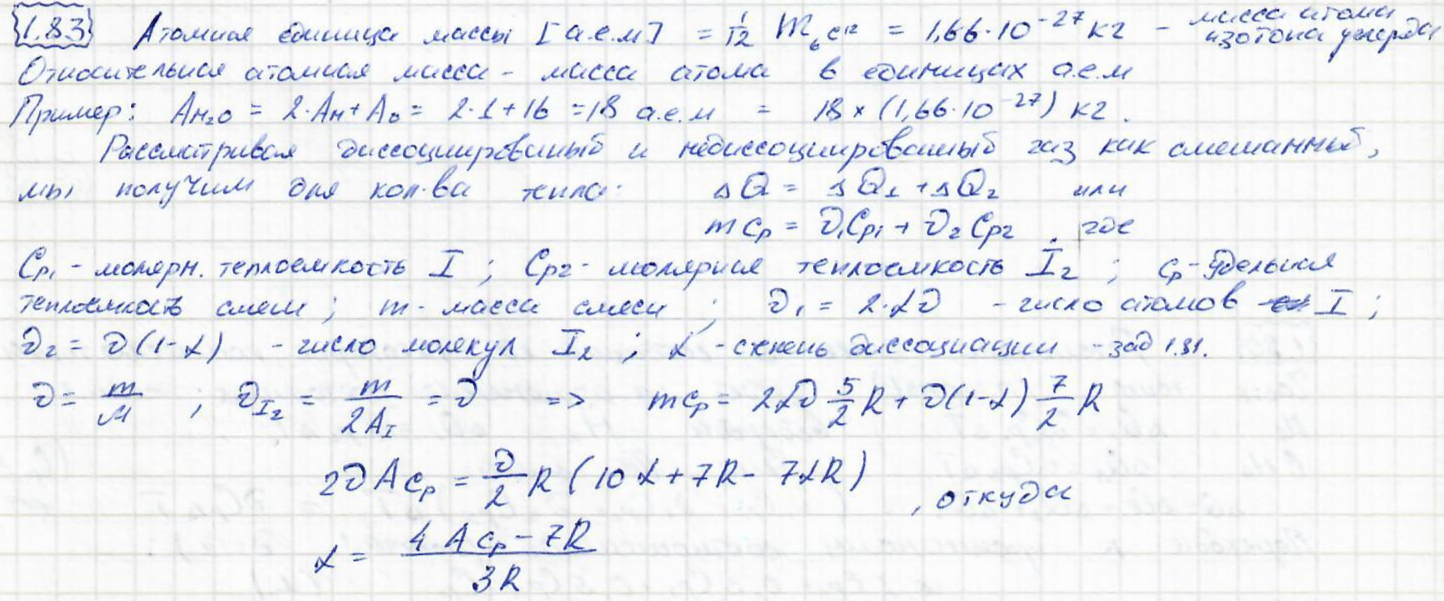 1.83 Атомная единица массы [а.е.м] = 1/12 m ₆C¹² = 1,66·10⁻²⁷ кг - масса атома изотопа углерода
Относительная атомная масса - масса атома в единицах а.е.м
Пример: A_H₂O = 2·A_H + A_O = 2·1+16 = 18 а.е.м = 18×(1,66·10⁻²⁷) кг.
Рассматривая диссоциированый и недиссоциированый газ как смешанный,
мы получим для кол-ва тепла: ΔQ = ΔQ₁ + ΔQ₂ или
m cₚ = ν₁Cₚ₁ + ν₂Cₚ₂, где
Cₚ₁ - молярн. теплоемкость I ; Cₚ₂ - молярная теплоемкость I₂ ; cₚ - удельная
теплоемкость смеси ; m - масса смеси ; ν₁ = 2·αν - число атомов I ;
ν₂ = ν(1-α) - число молекул I₂ ; α - степень диссоциации - зад 1.81.
ν = m/M , ν_I₂ = m/2A_I = ν => m cₚ = 2αν 5/2 R + ν(1-α) 7/2 R
2νA cₚ = ν/2 R (10α + 7R - 7αR)
, откуда
α = (4Acₚ - 7R)/3R